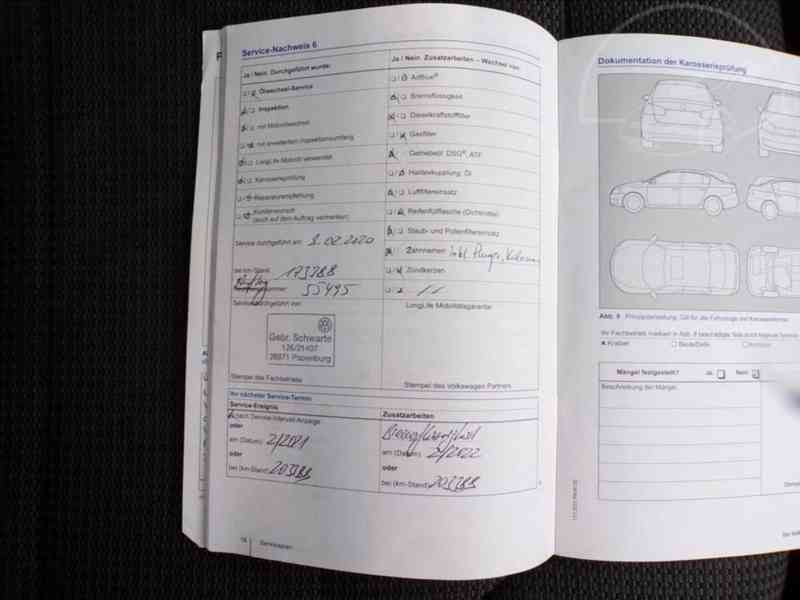 Service-Nachweis 6
Ja / Nein Durchgeführt wurde:
Ölwechsel-Service
Inspektion
mit Motorölwechsel
mit erweitertem Inspektionsumfang
LongLife Motoröl verwendet
Karosserieprüfung
Reparaturempfehlung
Kundenwunsch
(auch auf dem Auftrag vermerken)
Service durchgeführt am: 02.2020
bei km-Stand: 173788
55495
Service durchgeführt von:
Gebr. Schwarte
126/21407
26871 Papenburg
Stempel des Fachbetriebs
Ja / Nein Zusatzarbeiten – Wechsel von:
AdBlue®
Bremsflüssigkeit
Dieselkraftstofffilter
Gasfilter
Getriebeöl: DSG®, ATF
Haldexkupplung: Öl
Luftfiltereinsatz
Reifenfüllflasche (Dichtmittel)
Staub- und Pollenfiltereinsatz
Zahnriemen inkl.
Zündkerzen
LongLife Mobilitätsgarantie
Stempel des Volkswagen Partners
Ihr nächster Service-Termin:
Service-Ereignis
nach Service-Intervall-Anzeige
oder
am (Datum): 2/2021
oder
bei (km-Stand): 203788
Zusatzarbeiten
am (Datum): 2/2022
oder
bei (km-Stand): 203788
Serviceplan
Dokumentation der Karosserieprüfung
Abb. 9 Prinzipdarstellung: Gilt für alle Fahrzeuge mit Karosserieformen
Ihr Fachbetrieb markiert in Abb. 9 beschädigte Teile durch folgende
Kratzer
Beule/Delle
Mängel festgestellt? Ja Nein
Beschreibung der Mängel: